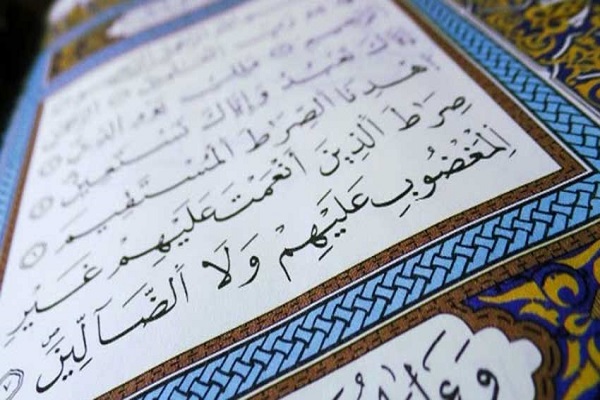 مَلِكِ يَوْمِ الدِّينِ
إِيَّاكَ نَعْبُدُ وَإِيَّاكَ نَسْتَعِينُ
اهْدِنَا الصِّرَاطَ الْمُسْتَقِيمَ
صِرَاطَ الَّذِينَ أَنْعَمْتَ عَلَيْهِمْ غَيْرِ
الْمَغْضُوبِ عَلَيْهِمْ وَلَا الضَّآلِّينَ